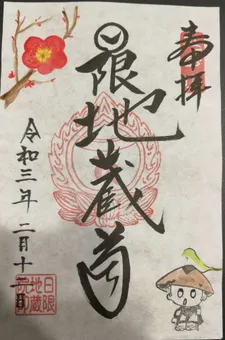 奉拝
日限地蔵尊
令和三年二月十日
日限
地蔵